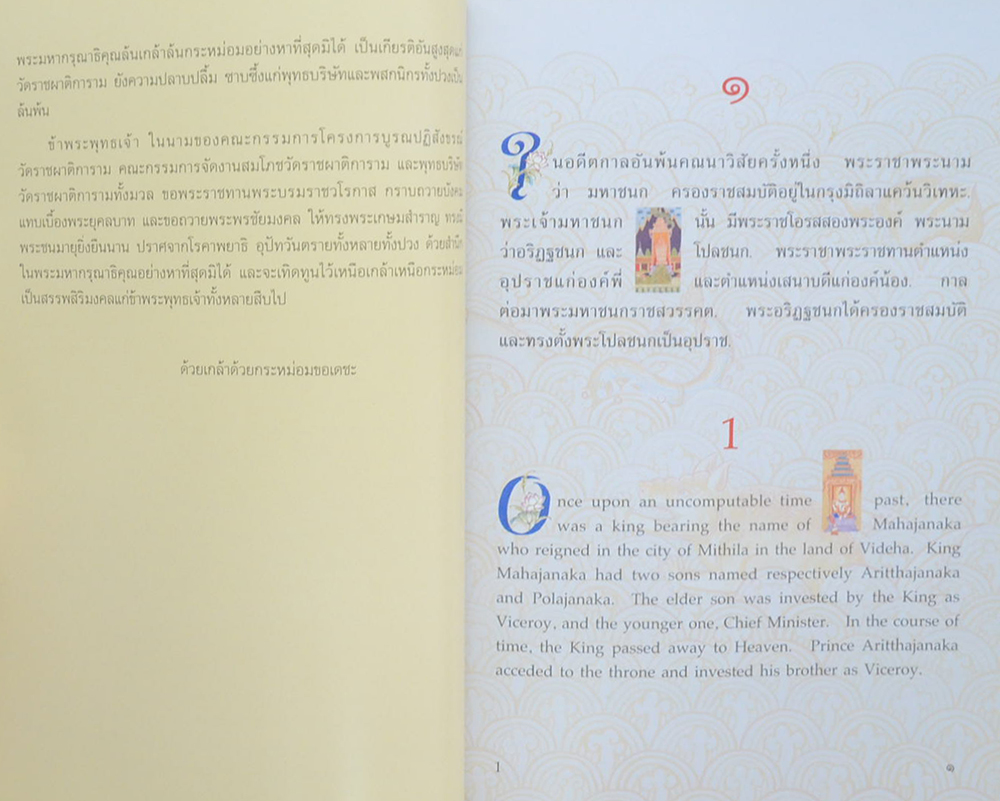 พระมหากรุณาธิคุณล้นเกล้าล้นกระหม่อมอย่างหาที่สุดมิได้ เป็นเกียรติอันสูงสุดแก่
วัดราชผาติการาม ยังความปลาบปลื้ม ซาบซึ้งแก่พุทธบริษัทและพสกนิกรทั้งปวงเป็น
ล้นพ้น
ข้าพระพุทธเจ้า ในนามของคณะกรรมการโครงการบูรณปฏิสังขรณ์
วัดราชผาติการาม คณะกรรมการจัดงานสมโภชวัดราชผาติการาม และพุทธบริษัท
วัดราชผาติการามทั้งมวล ขอพระราชทานพระบรมราชวโรกาส กราบถวายบังคม
แทบเบื้องพระยุคลบาท และขอถวายพระพรชัยมงคล ให้ทรงพระเกษมสำราญ ทรงมี
พระชนมายุยั่งยืนนาน ปราศจากโรคาพยาธิ อุปัทวันตรายทั้งหลายทั้งปวง ด้วยสำนึก
ในพระมหากรุณาธิคุณอย่างหาที่สุดมิได้ และจะเทิดทูนไว้เหนือเกล้าเหนือกระหม่อม
เป็นสรรพสิริมงคลแก่ข้าพระพุทธเจ้าทั้งหลายสืบไป
ด้วยเกล้าด้วยกระหม่อมขอเดชะ
๑
ในอดีตกาลอันพ้นคณนาวิสัยครั้งหนึ่ง พระราชาพระนาม
ว่า มหาชนก ครองราชสมบัติอยู่ในกรุงมิถิลาแคว้นวิเทหะ.
พระเจ้ามหาชนก นั้น มีพระราชโอรสสองพระองค์ พระนาม
ว่าอริฏฐชนก และ โปลชนก. พระราชาพระราชทานตำแหน่ง
อุปราชแก่องค์พี่ และตำแหน่งเสนาบดีแก่องค์น้อง. กาล
ต่อมาพระมหาชนกราชสวรรคต, พระอริฏฐชนกได้ครองราชสมบัติ
และทรงตั้งพระโปลชนกเป็นอุปราช.
1
Once upon an uncomputable time past, there
was a king bearing the name of Mahajanaka
who reigned in the city of Mithila in the land of Videha. King
Mahajanaka had two sons named respectively Aritthajanaka
and Polajanaka. The elder son was invested by the King as
Viceroy, and the younger one, Chief Minister. In the course of
time, the King passed away to Heaven. Prince Aritthajanaka
acceded to the throne and invested his brother as Viceroy.
1 ๑